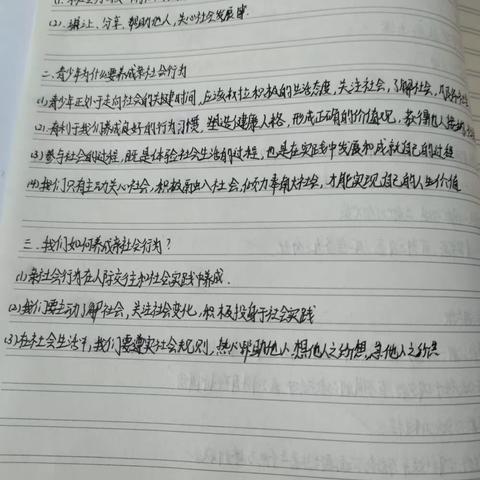 (2).谦让、分享、帮助他人,关心社会发展等.
二、青少年为什么要养成亲社会行为
(1)青少年正处于走向社会的关键时间,应该树立积极的生活态度,关注社会,了解社会,
(2).有利于我们养成良好的行为习惯,塑造健康人格,形成正确的价值观,获得他人
(3)参与社会的过程,既是体验社会生活的过程,也是在实践中发展和成就自己的过程
(4)我们只有主动关心社会,积极融入社会,倾力奉献社会,才能实现自己的人生价值
三.我们如何养成亲社会行为?
(1)亲社会行为在人际交往和社会实践中养成.
(2)我们要主动了解社会,关注社会变化,积极投身于社会实践
(3)在社会生活中,我们需遵守社会规则,热心帮助他人,想他人之所想,急他人之所急